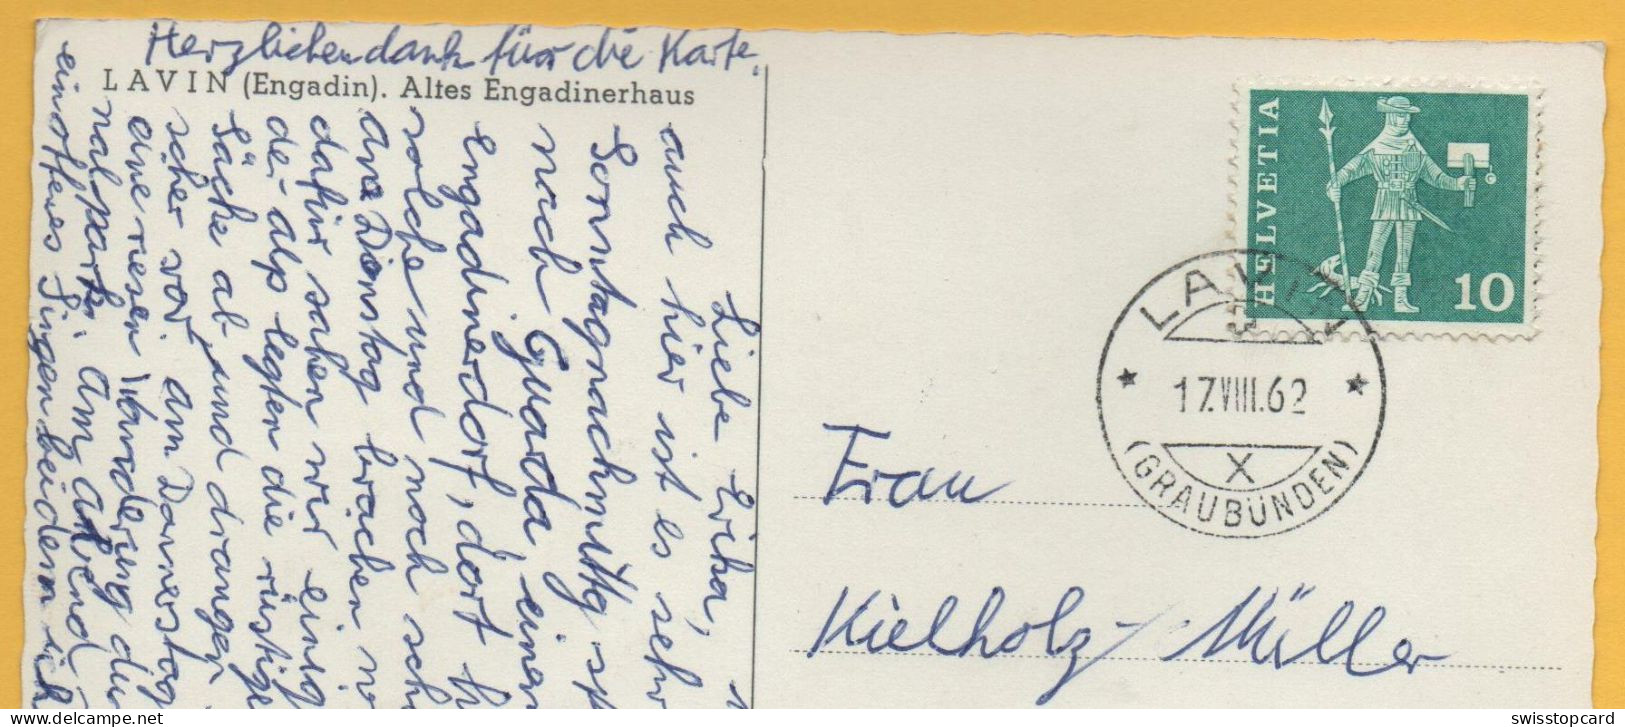 Herzlichen dank für die Karte.
LAVIN (Engadin). Altes Engadinerhaus
Liebe Erika,
auch hier ist es sehr
Sonntagnachmittg
nach Guarda, einem
Engadinerdorf, dort
solche und noch
am Dienstag brachen
dafür sahen wir einig
de-alp legten die rüstige
Säcke ab und drangen
scher vor. am Donnerstag
eine riesen Wanderung du
nalpark. am abend
ein offenes Singen bei dem ich
HELVETIA
10
LAVIN
17.VIII.62
X
(GRAUBÜNDEN)
Frau
Kielholz-Müller
delcampe.net
swisstopcard